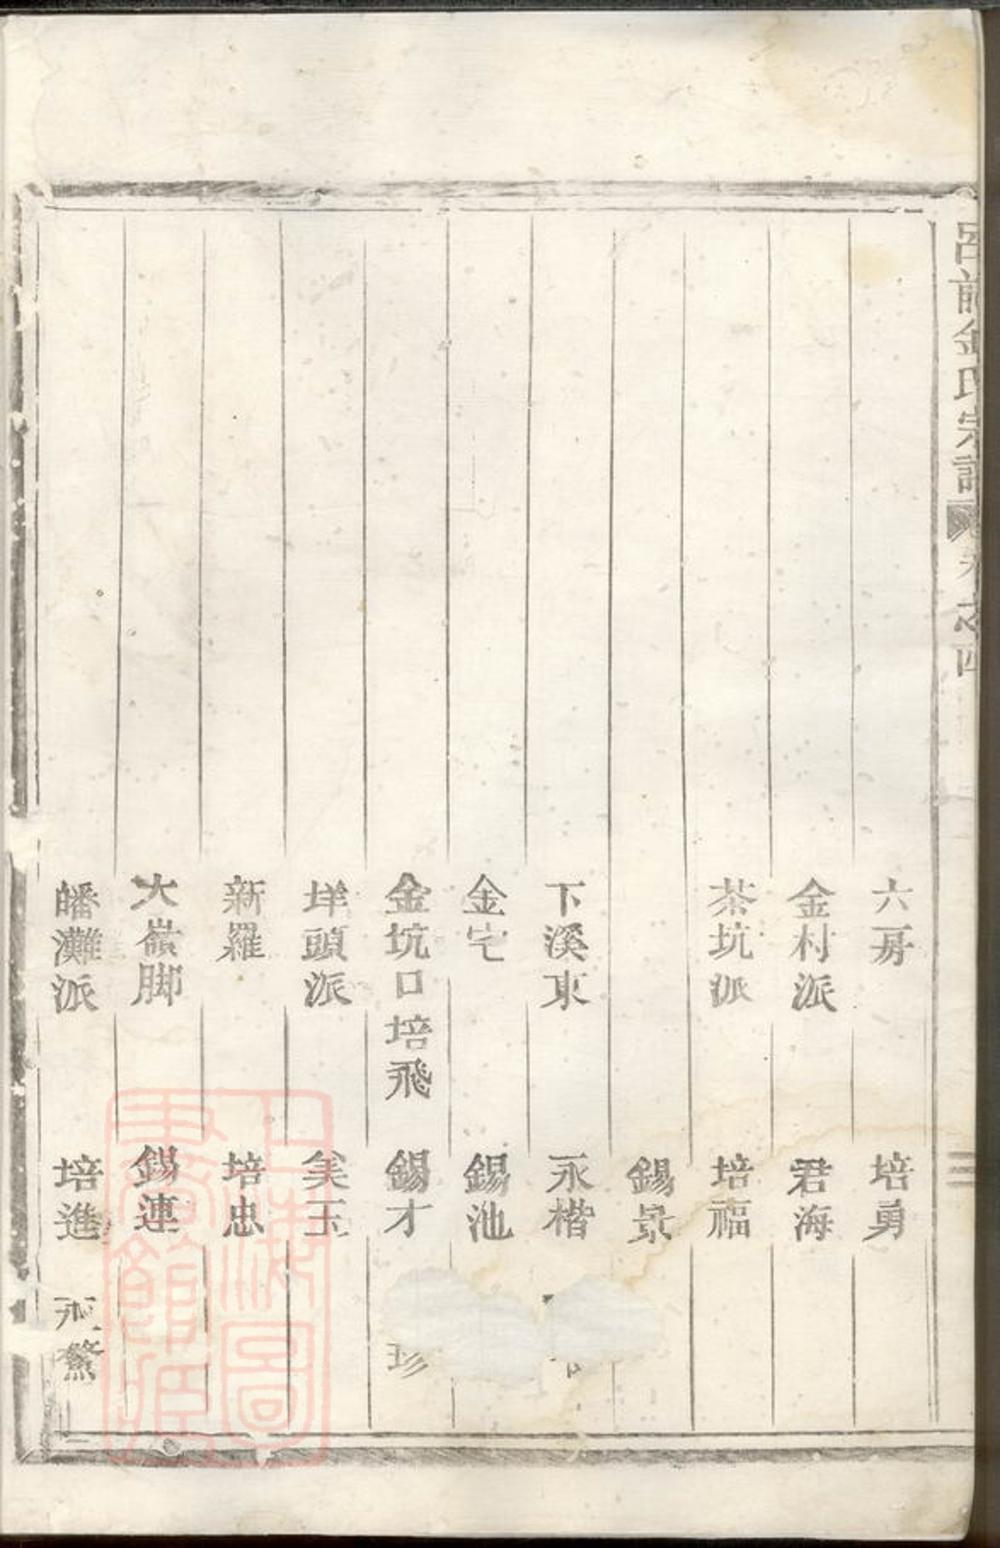 呂前金氏宗譜 卷之四 三
六房 培勇
金村派 君海
茶坑派 培福
錫景
下溪東 永楷
金宅 錫池
金坑口 培飛 錫才 珍
垟頭派 美玉
新羅 培忠
大嶺脚 錫連
皤灘派 培進
上海圖書館藏